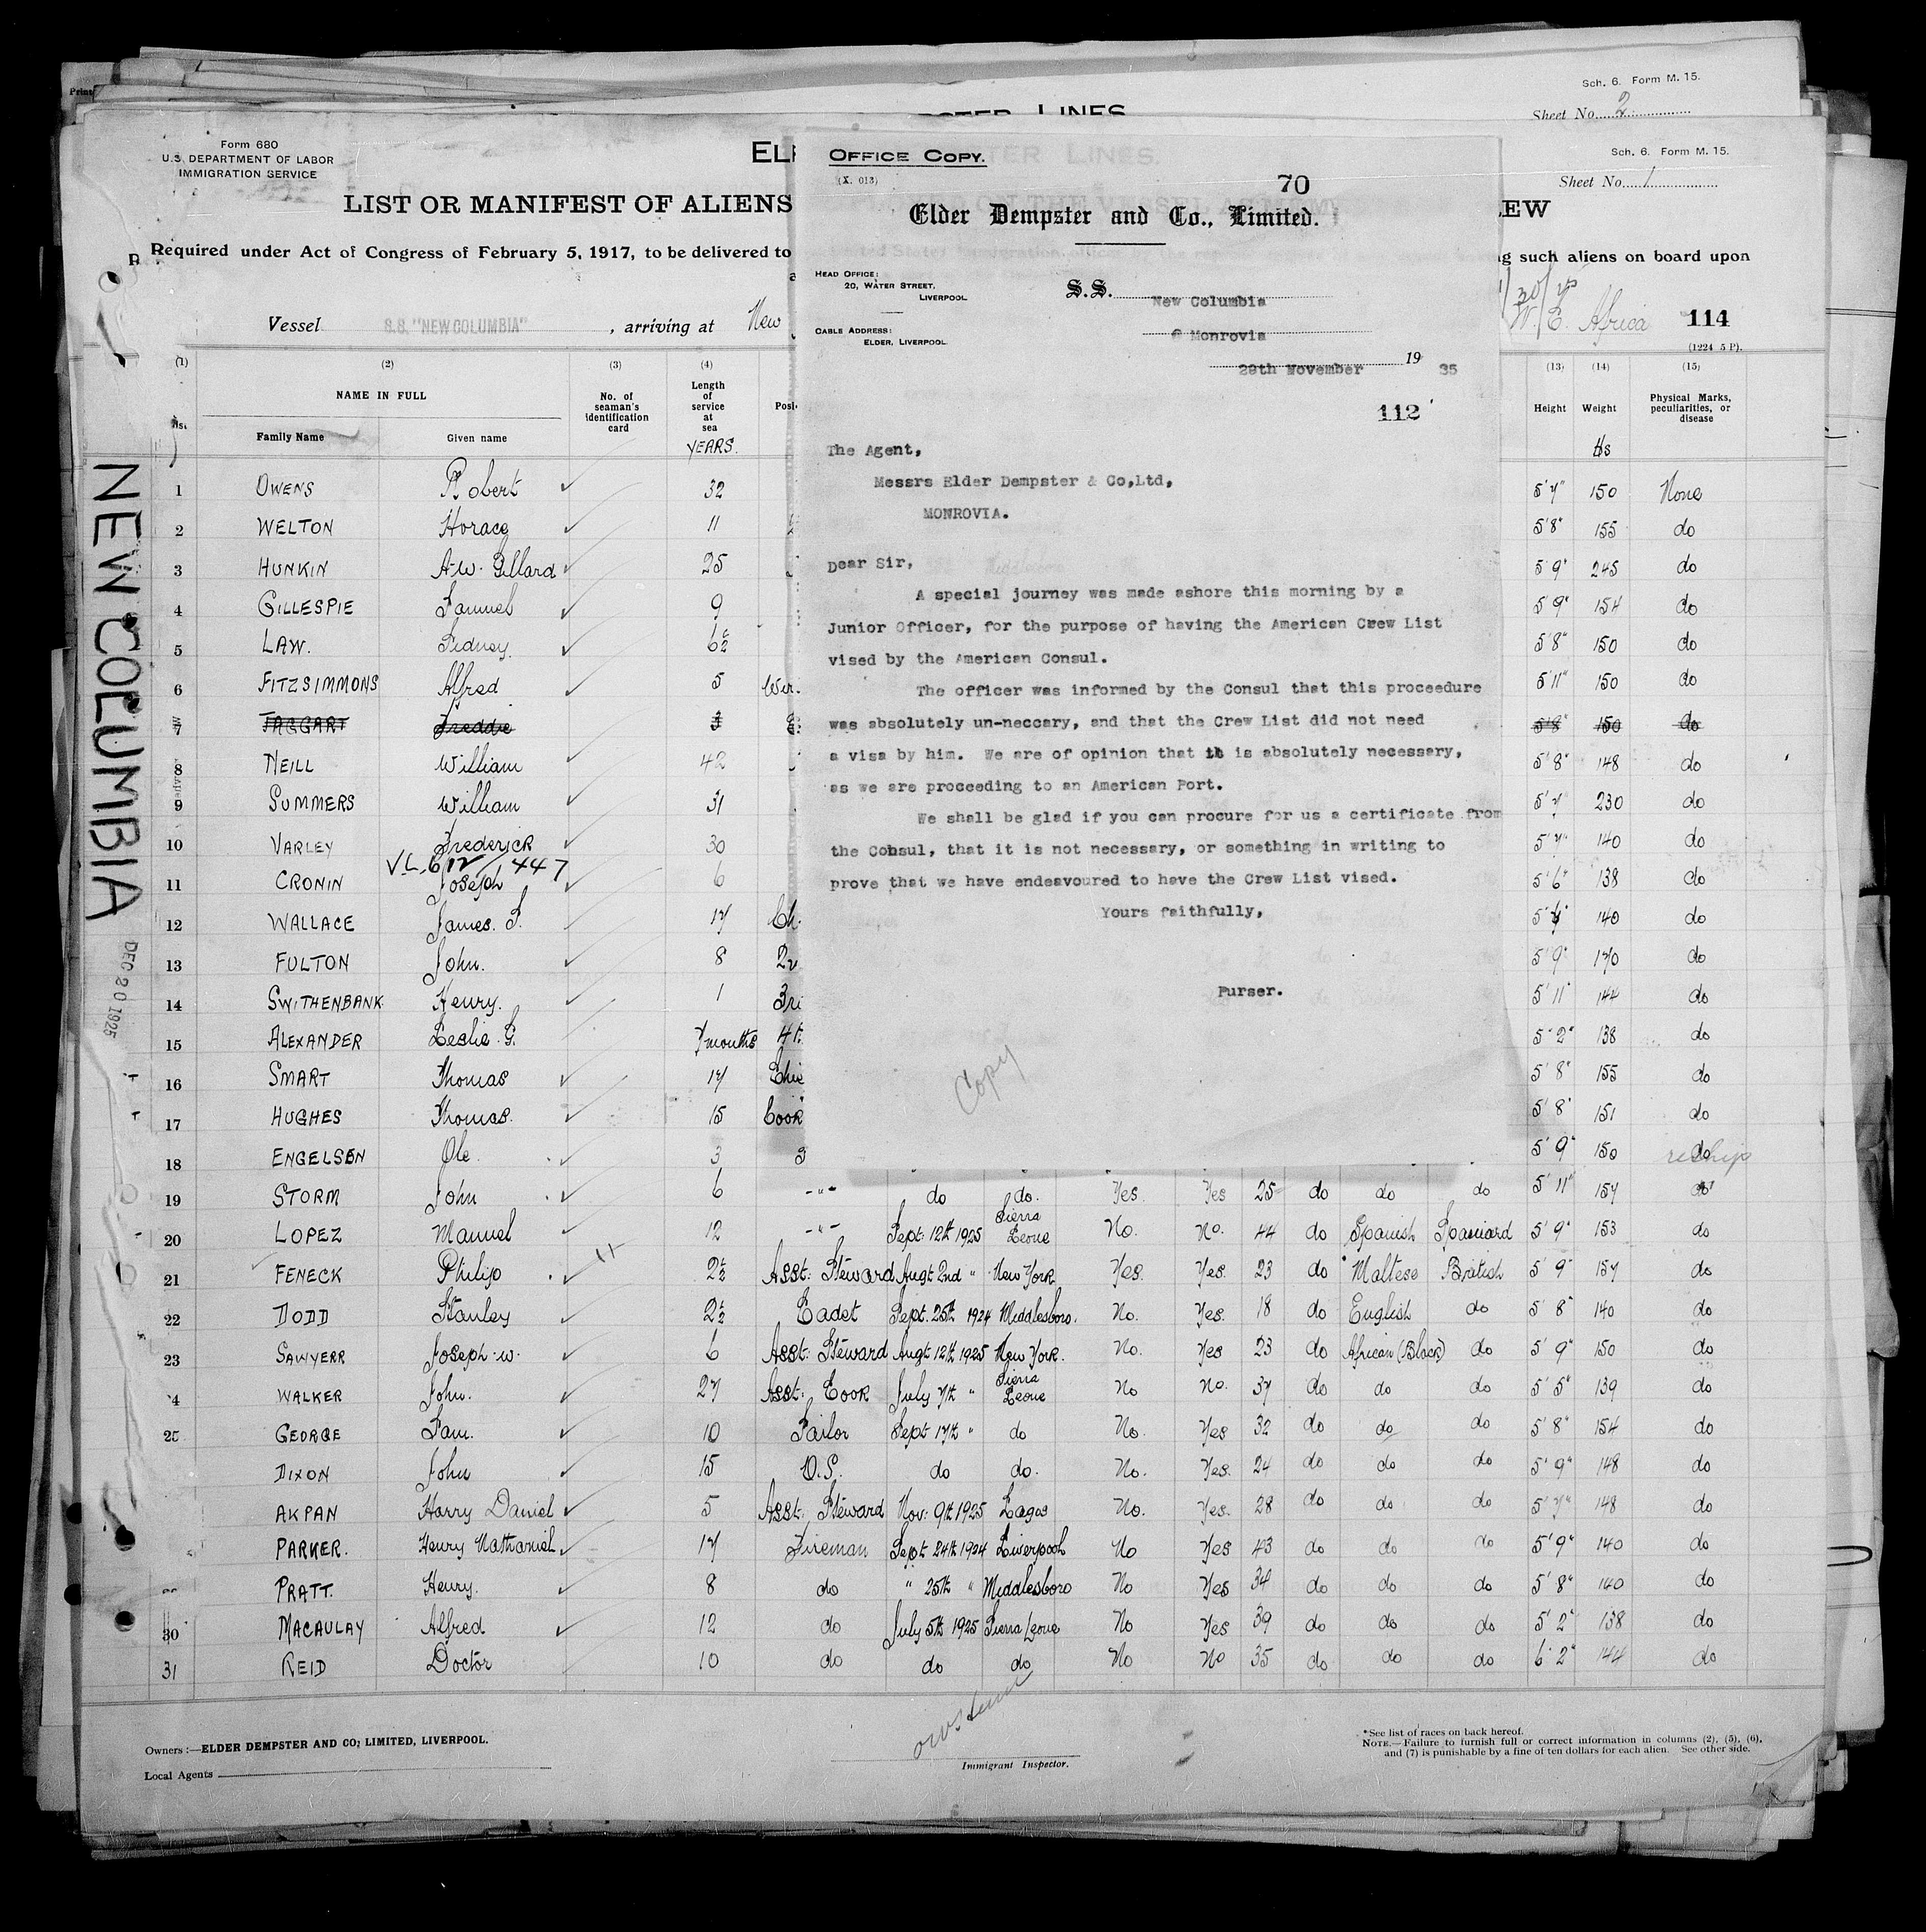 Sch. 6. Form M. 15.
Sheet No. 2
LINES
Form 680
U.S. DEPARTMENT OF LABOR
IMMIGRATION SERVICE
Sch. 6. Form M. 15.
Sheet No. 1
LIST OR MANIFEST OF ALIENS
EW
Required under Act of Congress of February 5, 1917, to be delivered to
g such aliens on board upon
Vessel S.S. "NEW COLUMBIA", arriving at New
W. C. Africa 114
(1224 5 P).
OFFICE COPY.
(X. 013)
70
Elder Dempster and Co., Limited.
HEAD OFFICE:
20, WATER STREET,
LIVERPOOL
CABLE ADDRESS:
ELDER, LIVERPOOL
S.S. New Columbia
@ Monrovia
28th November 19 35
112
The Agent,
Messrs Elder Dempster & Co,Ltd,
MONROVIA.
Dear Sir,
A special journey was made ashore this morning by a
Junior Officer, for the purpose of having the American Crew List
vised by the American Consul.
The officer was informed by the Consul that this proceedure
was absolutely un-neccary, and that the Crew List did not need
a visa by him. We are of opinion that it is absolutely necessary,
as we are proceeding to an American Port.
We shall be glad if you can procure for us a certificate from
the Consul, that it is not necessary, or something in writing to
prove that we have endeavoured to have the Crew List vised.
Yours faithfully,
Purser.
Copy
NEW COLUMBIA
DEC 20 1925
(1) (2) (3) (4) (13) (14) (15)
NAME IN FULL
Family Name Given name
No. of seaman's identification card
Length of service at sea
YEARS.
Height Weight
Physical Marks, peculiarities, or disease
1 OWENS Robert 32 5'7" 150 None
2 WELTON Horace 11 5'8" 155 do
3 HUNKIN A.W. Gillard 25 5'9" 245 do
4 GILLESPIE Samuel 9 5'9" 154 do
5 LAW. Sidney. 6½ 5'8" 150 do
6 FITZSIMMONS Alfred 5 Wir. 5'11" 150 do
7 TAGGART Freddie 3 5'8" 150 do
8 NEILL William 42 5'8" 148 do
9 SUMMERS William 31 5'7" 230 do
10 VARLEY Frederick 30 5'7" 140 do
V.L. 612/1447
11 CRONIN Joseph 6 5'6" 138 do
12 WALLACE James. S. 17 Ch. 140 do
13 FULTON John. 8 2n 5'9" 170 do
14 SWITHENBANK Henry. 1 3r 5'11" 144 do
15 ALEXANDER Leslie G. 7 months 4t 5'2" 138 do
16 SMART Thomas 17 Chie 5'8" 155 do
17 HUGHES Thomas. 15 Cook 5'8" 151 do
18 ENGELSEN Ole. 3 5'9" 150 do reship
19 STORM John 6 -"- do do. Yes. Yes 25 do do do 5'11" 157 do
20 LOPEZ Manuel 12 -"- Sept: 12th 1925 Sierra Leone No. No. 44 do Spanish Spaniard 5'9" 153 do
21 FENECK Philip 2½ Asst: Steward Augt 2nd " New York Yes. Yes. 23 do Maltese British 5'9" 157 do
22 DODD Stanley 2½ Cadet Sept. 25th 1924 Middlesboro. No. Yes. 18 do English do 5'8" 140 do
23 SAWYERR Joseph W. 6 Asst: Steward Augt 12th 1925 New York. No. Yes 23 do African (Black) do 5'9" 150 do
4 WALKER John. 27 Asst: Cook July 7th " Sierra Leone No No. 37 do do do 5'5" 139 do
25 GEORGE Sam. 10 Sailor Sept 17th " do No. Yes 32 do do do 5'8" 154 do
DIXON John 15 O.S. do do. No. Yes. 24 do do do 5'9" 148 do
AKPAN Harry Daniel 5 Asst: Steward Nov: 9th 1925 Lagos No. Yes. 28 do do do 5'7" 148 do
PARKER. Henry Nathaniel 17 Fireman Sept 24th 1924 Liverpool No Yes 43 do do do 5'9" 140 do
PRATT. Henry. 8 do " 25th " Middlesboro No Yes 34 do do do 5'8" 140 do
30 MACAULAY Alfred 12 do July 5th 1925 Sierra Leone No Yes 39 do do do 5'2" 138 do
31 REID Doctor 10 do do do No No 35 do do do 6'2" 144 do
Owners :—ELDER DEMPSTER AND CO; LIMITED, LIVERPOOL.
Local Agents
Immigrant Inspector.
*See list of races on back hereof.
NOTE.—Failure to furnish full or correct information in columns (2), (5), (6),
and (7) is punishable by a fine of ten dollars for each alien. See other side.